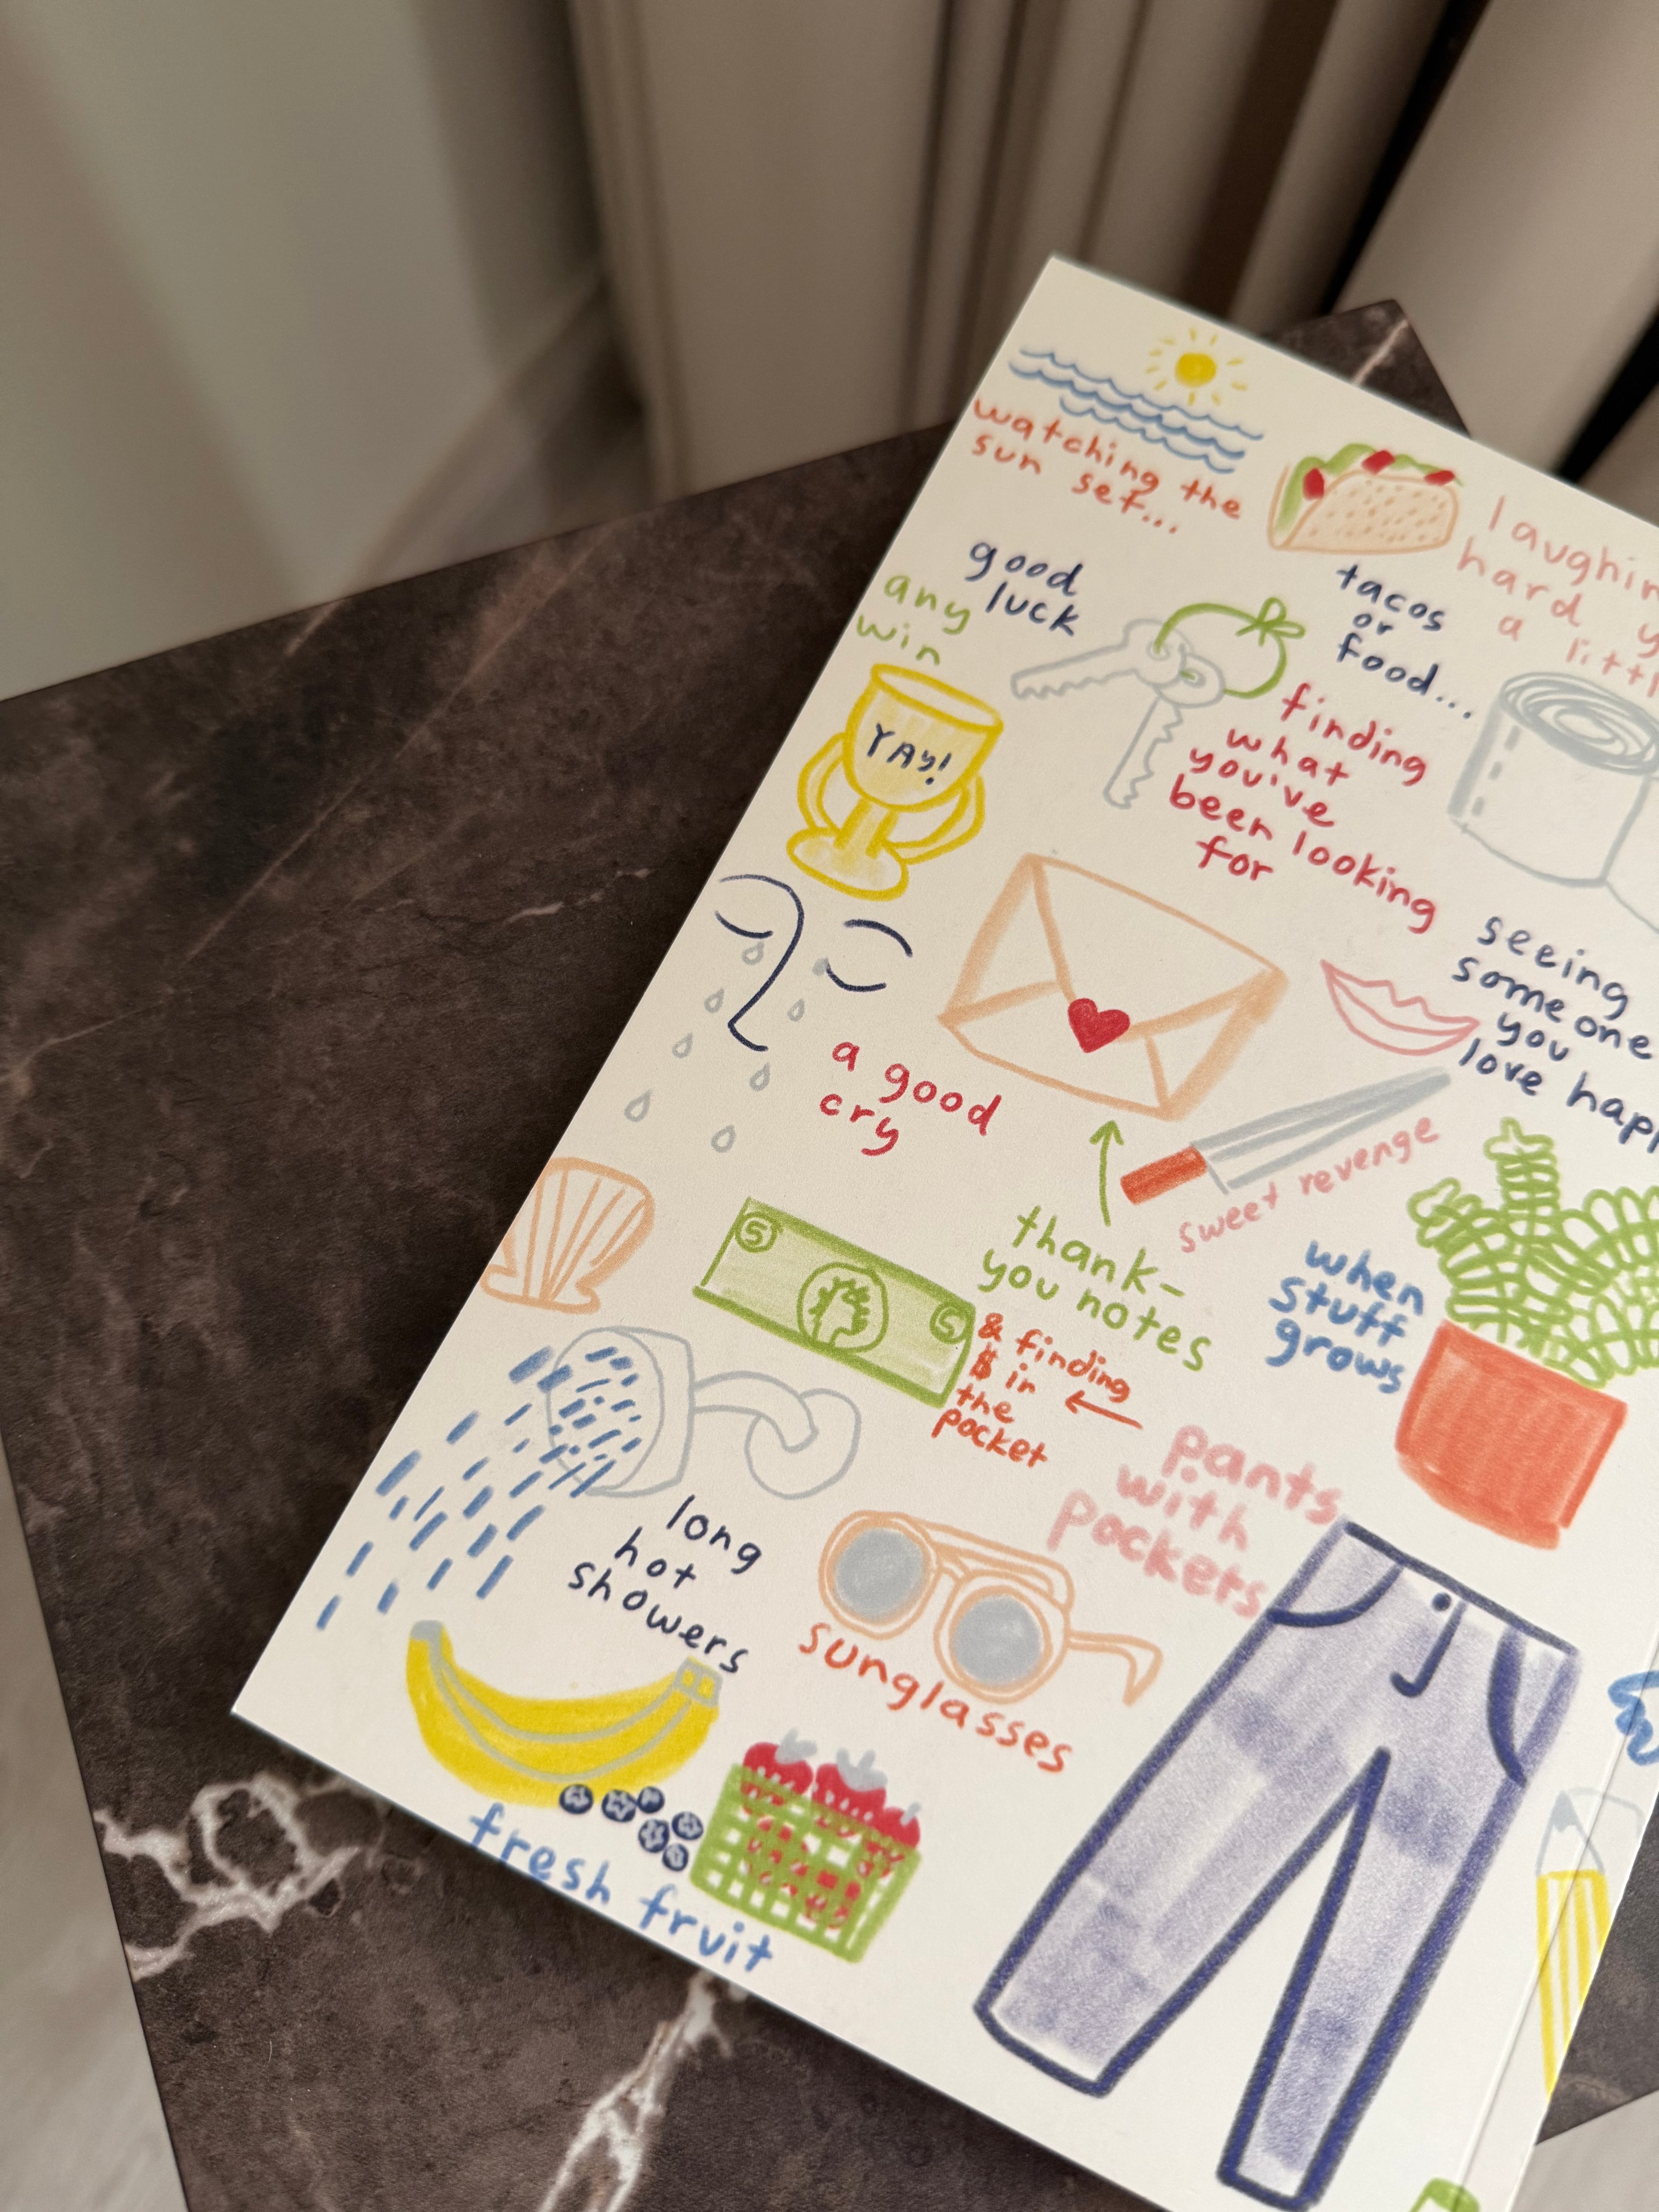 watching the
sun set...
good
luck
any
win
YAY!
tacos
or
food...
hard
a
finding
what
you've
been looking
for
seeing
someone
you
love
a good
cry
sweet revenge
thank-
you notes
when
stuff
grows
5
5
& finding
$ in
the
pocket
pants
with
pockets
long
hot
showers
sunglasses
fresh fruit